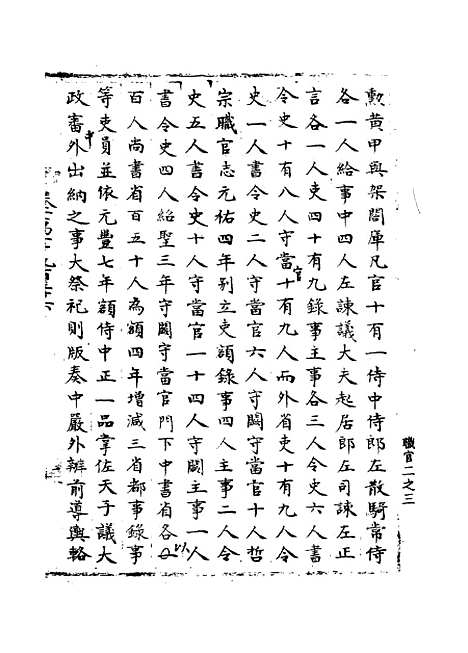 職官二之三
勳黄甲與架閣庫凡官十有一侍中侍郎左散騎常侍
各一人給事中四人左諫議大夫起居郎左司諫左正
言各一人吏四十有九錄事主事各三人令史六人書
令史十有八人守當官十有九人而外省吏十有九人令
史一人書令史二人守當官六人守闕守當官十人哲
宗職官志元祐四年别立吏額錄事四人主事二人令
史五人書令史十人守當官一十四人守闕主事一人
書令史四人紹聖三年守闕守當官門下中書省各以
百人尚書省百五十人為額四年增減三省都事錄事
等吏員並依元豐七年額侍中正一品掌佐天子議大
政審中外出納之事大祭祀則版奏中嚴外辦前導輿輅